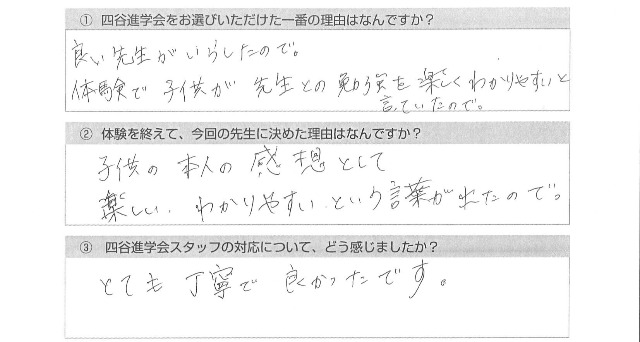 ① 四谷進学会をお選びいただけた一番の理由はなんですか？
良い先生がいらしたので。
体験で子供が先生との勉強を楽しくわかりやすいと
言っていたので。
② 体験を終えて、今回の先生に決めた理由はなんですか？
子供の本人の感想として
楽しい、わかりやすい、という言葉がでたので。
③ 四谷進学会スタッフの対応について、どう感じましたか？
とても丁寧で良かったです。